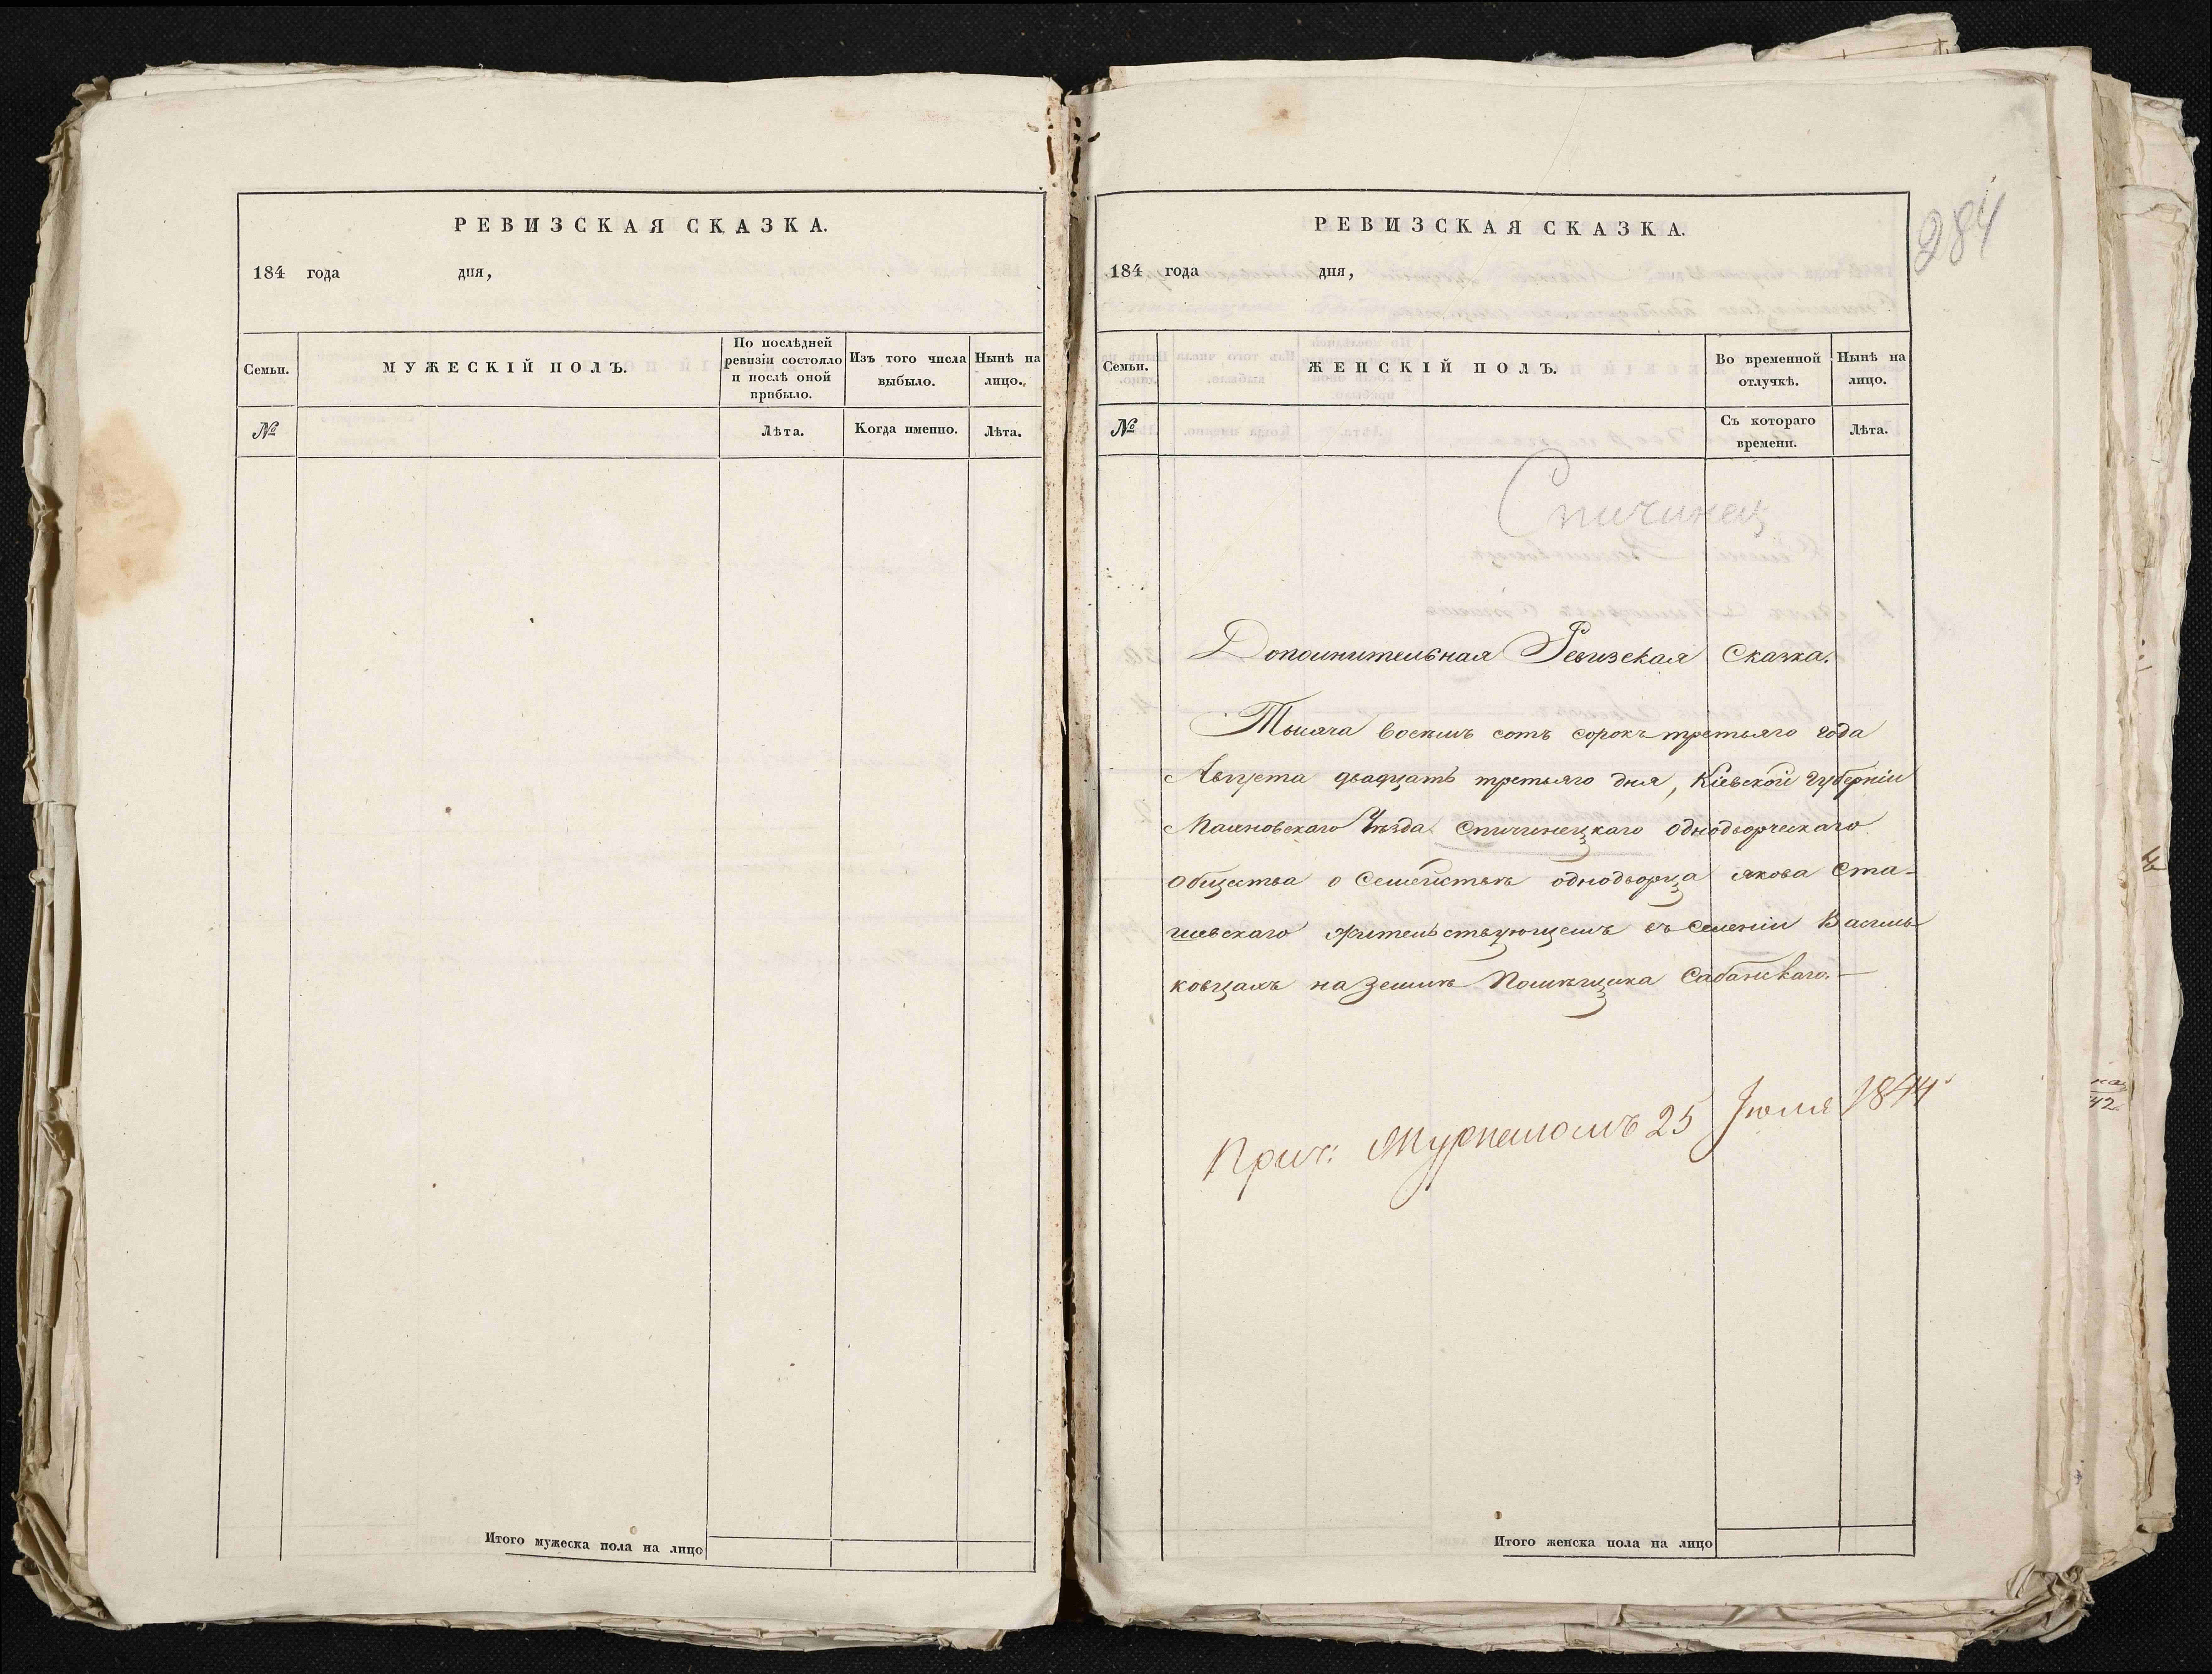 РЕВИЗСКАЯ СКАЗКА.
184 года дня,
Семьи.
МУЖЕСКІЙ ПОЛЪ.
По послѣдней ревизіи состояло и послѣ оной прибыло.
Изъ того числа выбыло.
Нынѣ на лицо.
№
Лѣта.
Когда именно.
Лѣта.
Итого мужеска пола на лицо
РЕВИЗСКАЯ СКАЗКА.
184 года дня,
284
Семьи.
ЖЕНСКІЙ ПОЛЪ.
Во временной отлучкѣ.
Нынѣ на лицо.
№
Съ котораго времени.
Лѣта.
Спичинец
Дополнительная Ревизская Сказка.
Тысяча восемь сотъ сорокъ третьяго года
Августа двадцать третьяго дня, Кіевской Губерніи
Махновскаго Уѣзда Спичинецкаго однодворческаго
общества о Семействѣ однодворца Якова Ста-
шевскаго жительствующемъ въ Селеніи Василь
ковцахъ на Землѣ Помѣщика Сабанскаго.—
Прич: Журналомъ 25 Іюля 1844
Итого женска пола на лицо